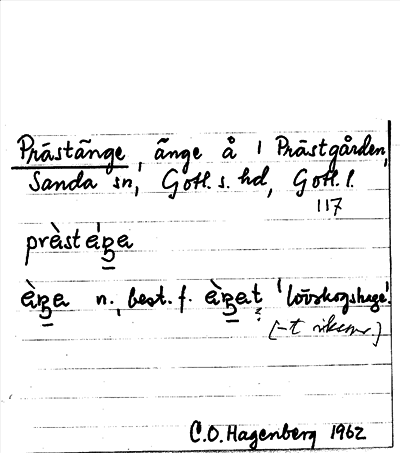 Prästänge, änge å 1 Prästgården,
Sanda sn, Gotl. s. hd, Gotl. l.
117
n., best. f. 'lövskogshage'.
C.O. Hagenberg 1962